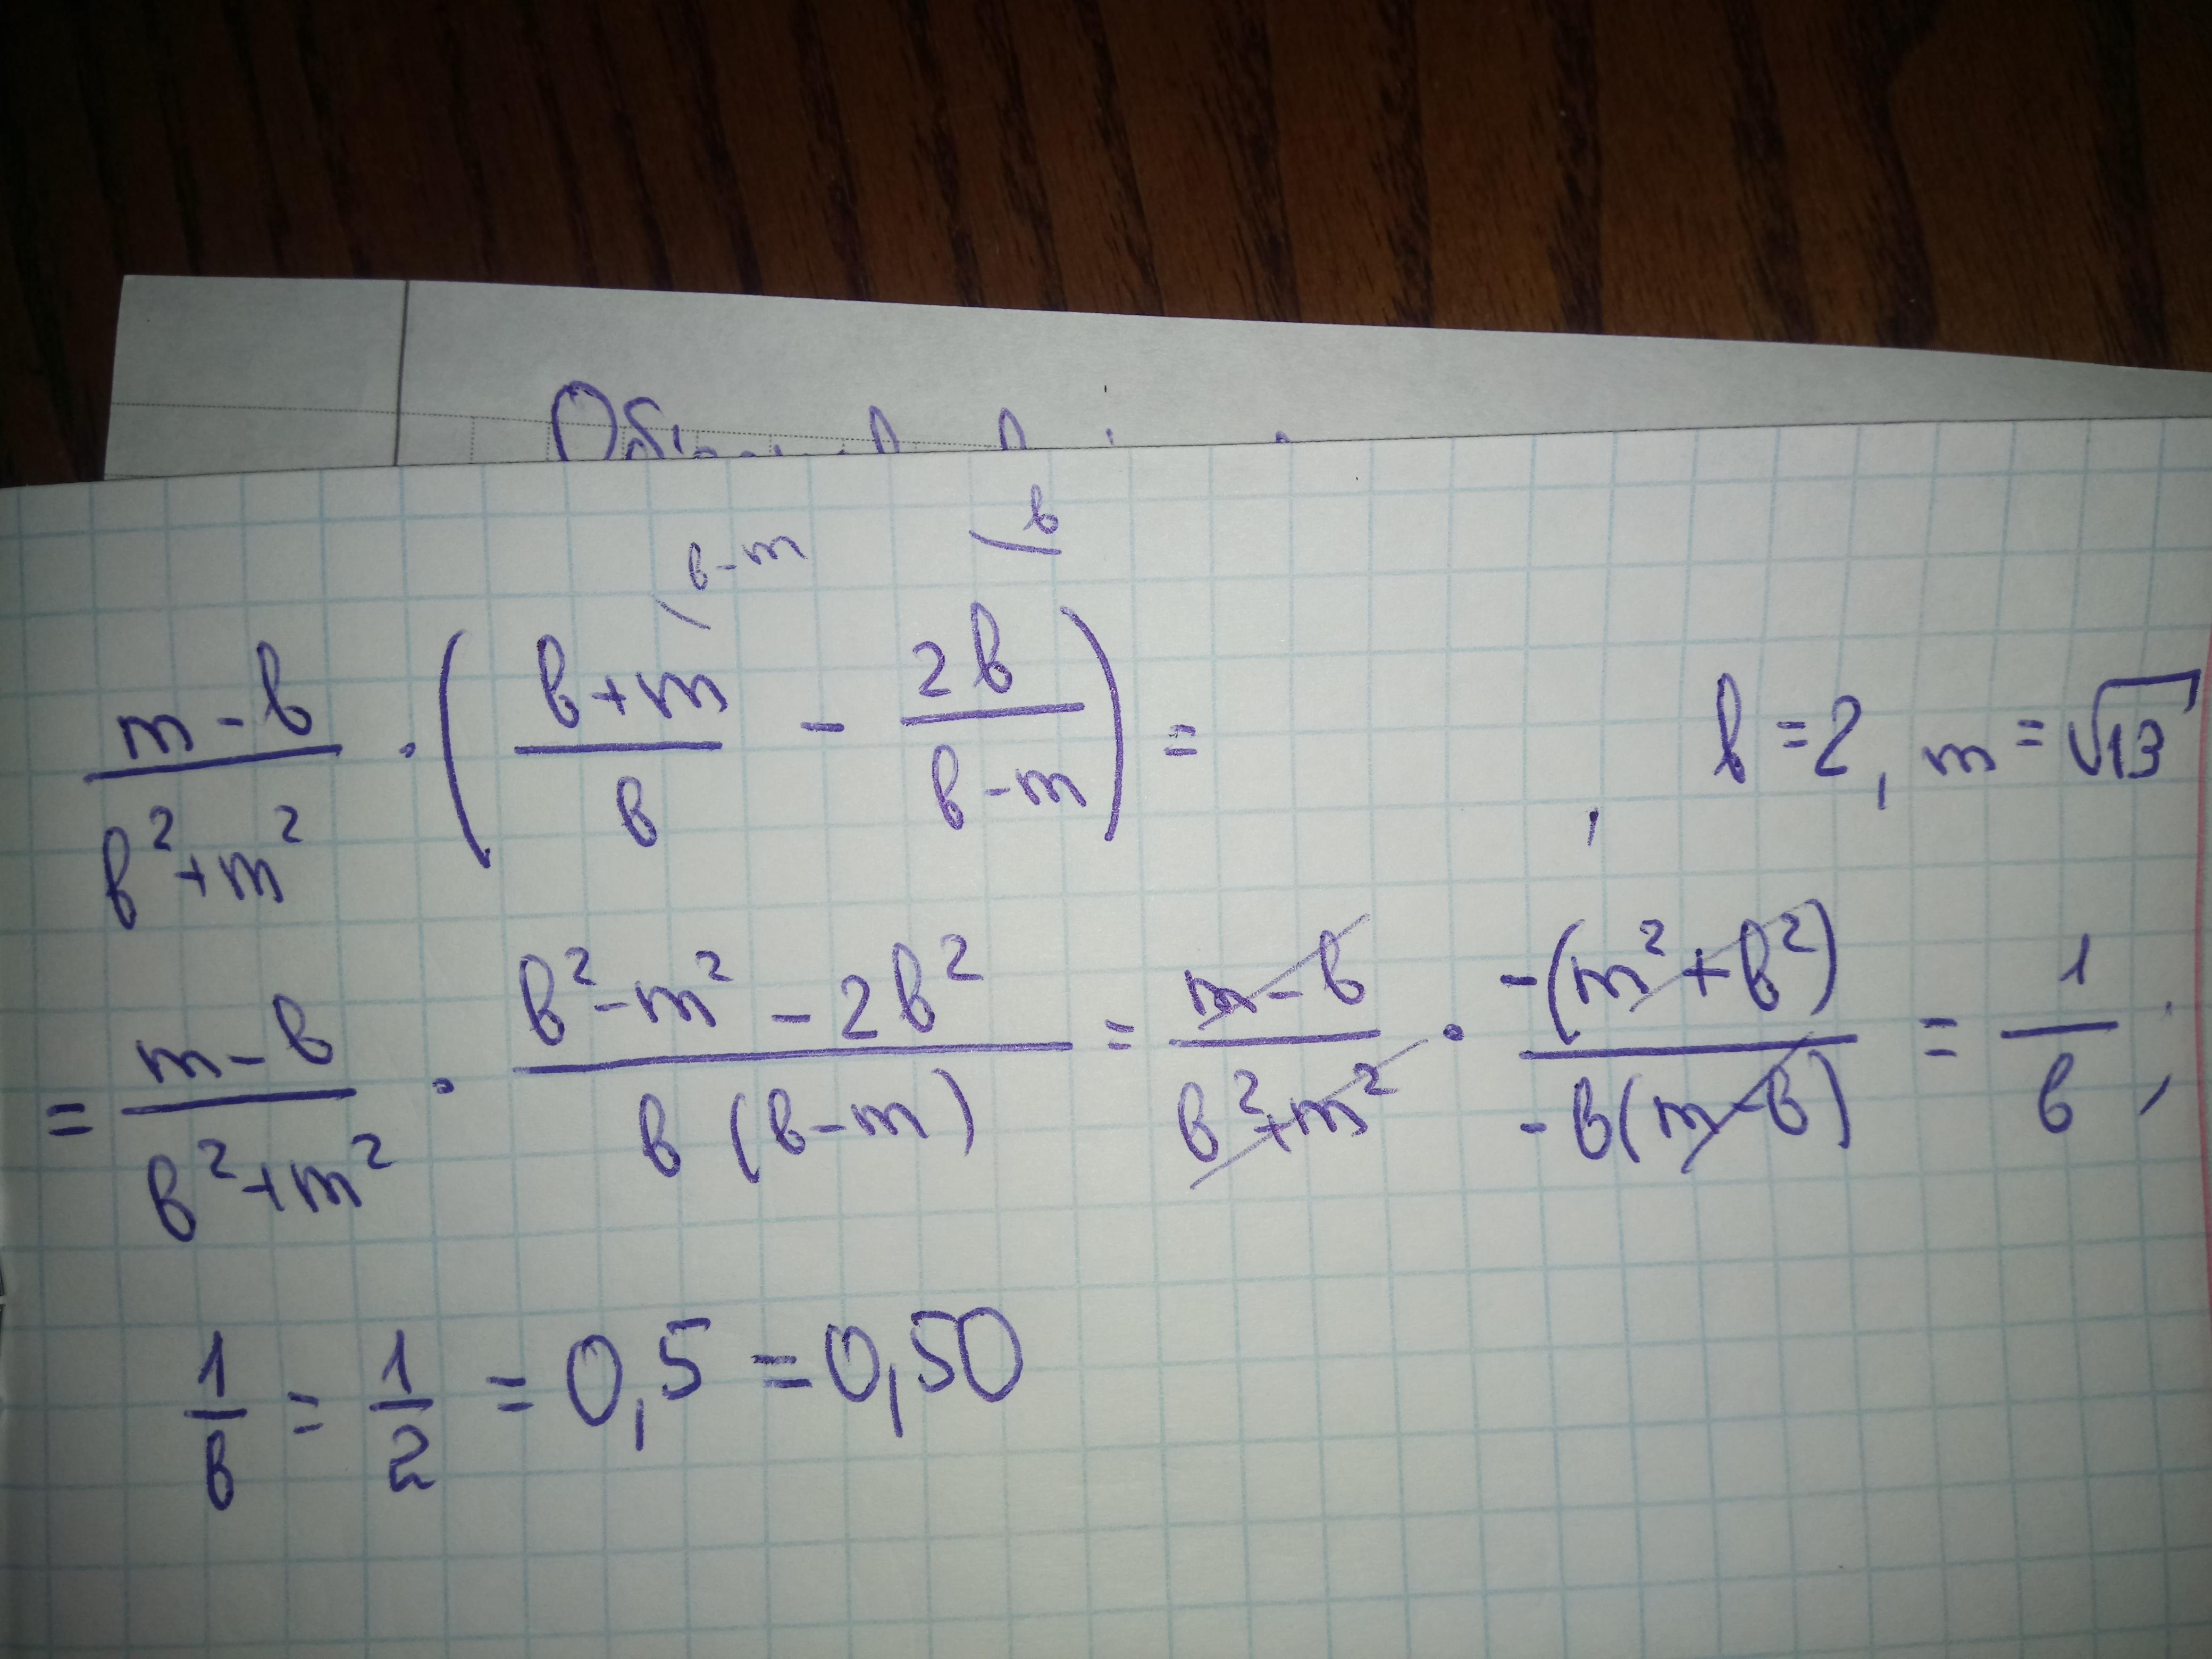 b-m b
(m-b)/(b²+m²) · ((b+m)/b - 2b/(b-m)) = , b=2, m=√13
= (m-b)/(b²+m²) · (b²-m²-2b²)/(b(b-m)) = (m-b)/(b²+m²) · (-(m²+b²))/(-b(m-b)) = 1/b ;
1/b = 1/2 = 0,5 = 0,50